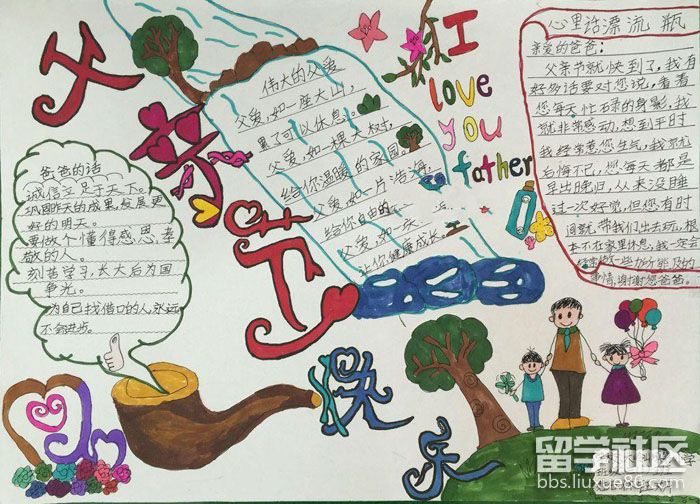 父亲节
快乐
I
love
you
father
伟大的父爱
父爱，如一座大山，
累了可以休息。
父爱，如一棵大树，
给你温暖的家园。
父爱，如一片浩海，
给你自由的
父爱，如一
让你健康成长。
心里话漂流瓶
亲爱的爸爸：
父亲节就快到了，我有
好多话要对您说，看着
您每天忙碌的身影，我
就非常感动，想到平时
我经常惹您生气，我就
后悔不已，您每天都是
早出晚归，从来没睡
过一次好觉，但您有时
间就带我们出去玩，根
本不在家里休息，我一定会
做一些力所能及的
事情，谢谢您爸爸。
爸爸的话
诚信立足于天下。
巩固昨天的成果，发展更
好的明天。
要做个懂得感恩、孝
敬的人。
刻苦学习，长大后为国
争光。
为自己找借口的人，永远
不会进步。
留学社区
bbs.liuxue86.com